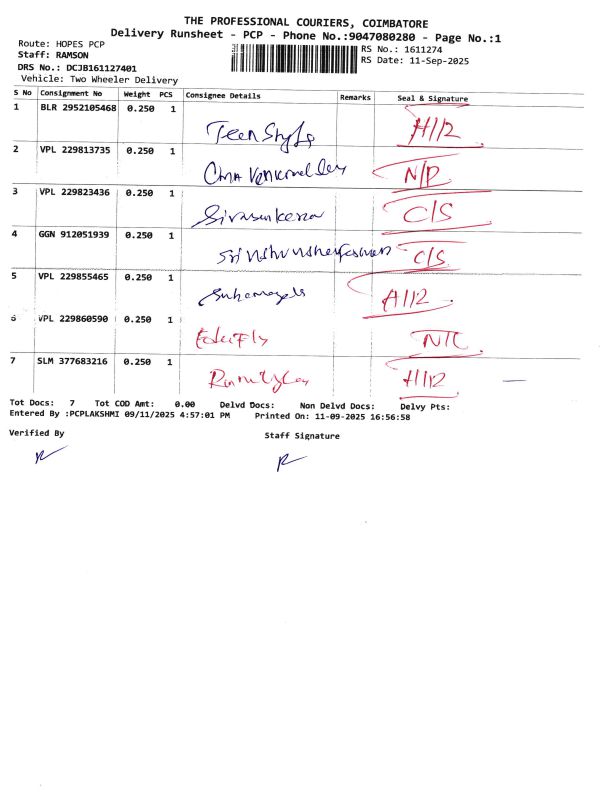 THE PROFESSIONAL COURIERS, COIMBATORE
Delivery Runsheet - PCP - Phone No.:9047080280 - Page No.:1
Route: HOPES PCP
Staff: RAMSON
DRS No.: DCJB161127401
Vehicle: Two Wheeler Delivery
RS No.: 1611274
RS Date: 11-Sep-2025
S No Consignment No Weight PCS Consignee Details Remarks Seal & Signature
1 BLR 2952105468 0.250 1 Teen Style H112
2 VPL 229813735 0.250 1 N/P
3 VPL 229823436 0.250 1 C/S
4 GGN 912051939 0.250 1 C/S
5 VPL 229855465 0.250 1 A112
6 VPL 229860590 0.250 1 NTC
7 SLM 377683216 0.250 1 H112
Tot Docs: 7 Tot COD Amt: 0.00 Delvd Docs: Non Delvd Docs: Delvy Pts:
Entered By :PCPLAKSHMI 09/11/2025 4:57:01 PM Printed On: 11-09-2025 16:56:58
Verified By Staff Signature